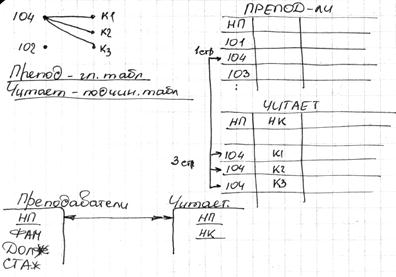 104 К1
К2
102 К3
Препод – гл. табл
Читает – подчин. табл
ПРЕПОД-ЛИ
НП
101
1 стр 104
103
:
ЧИТАЕТ
НП НК
3 стр
104 К1
104 К2
104 К3
Преподаватели Читает
НП НП
ФАМ НК
ДОЛЖ
СТАЖ